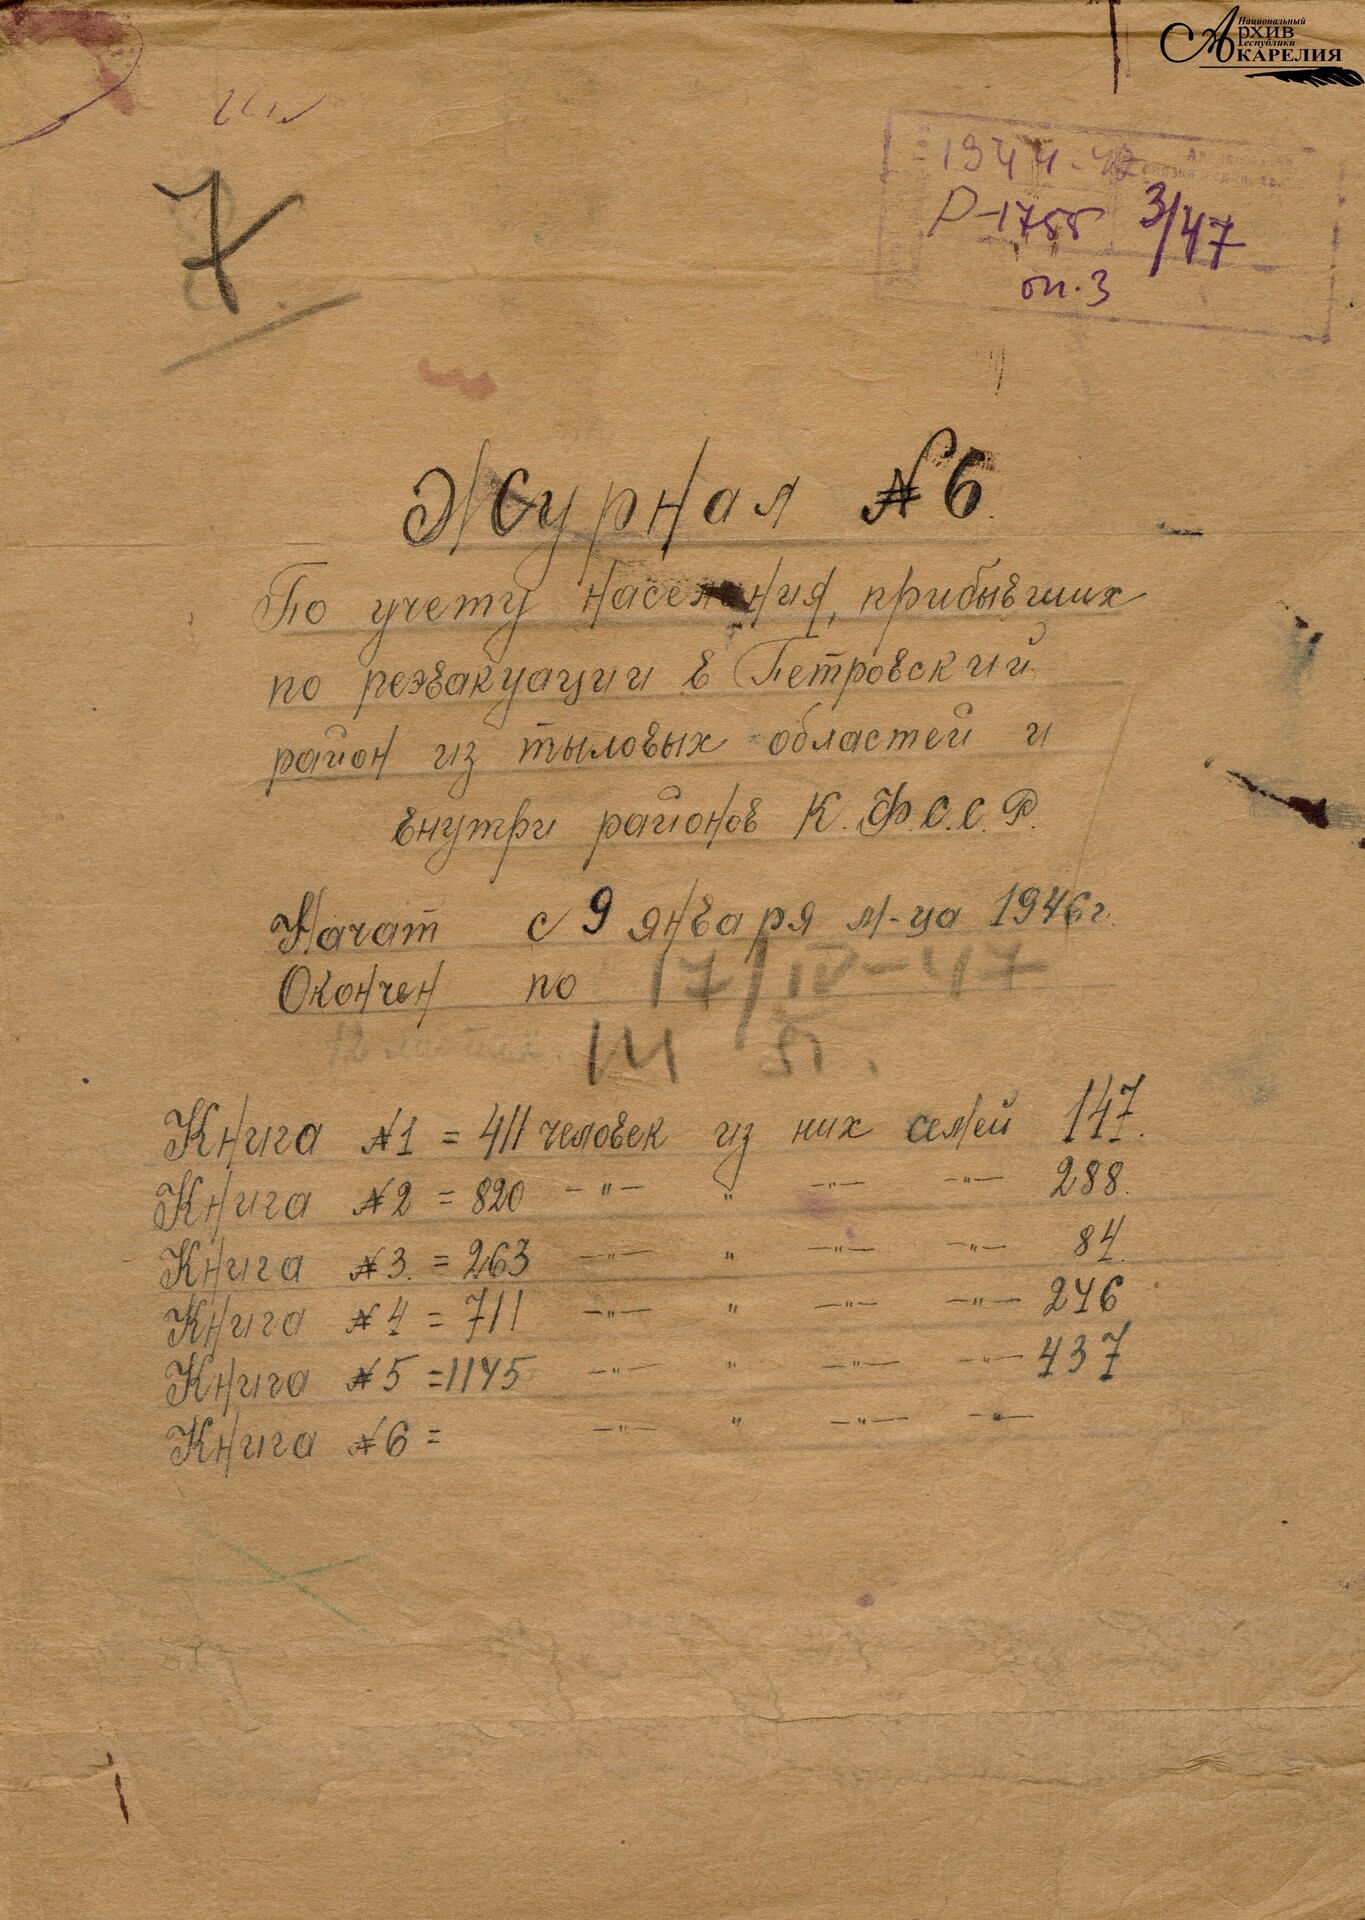 Национальный
Архив
Республики
КАРЕЛИЯ
7
1944-47
Р-1755 3/47
оп. 3
Журнал №6.
По учету населения, прибывших
по реэвакуации в Петровский
район из тыловых областей и
внутри районов К.Ф.С.С.Р.
Начат с 9 января м-ца 1946г.
Окончен по 17/IV-47
Книга №1 = 411 человек из них семей 147.
Книга №2 = 820 -"- " -"- -"- 288.
Книга №3. = 263 -"- " -"- -"- 84.
Книга №4 = 711 -"- " -"- -"- 246
Книга №5 = 1145 -"- " -"- -"- 437
Книга №6 = -"- " -"- -"-